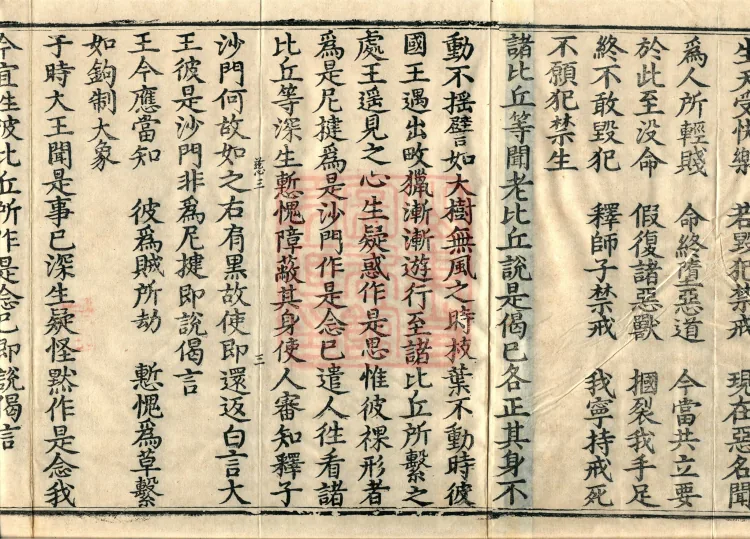 生天受快樂　若毀犯禁戒　現在惡名聞
爲人所輕賤　命終墮惡道　今當共立要
於此至没命　假復諸惡獸　摑裂我手足
終不敢毀犯　釋師子禁戒　我寧持戒死
不願犯禁生
諸比丘等聞老比丘説是偈已各正其身不
動不揺譬如大樹無風之時枝葉不動時彼
國王遇出畋獵漸漸遊行至諸比丘所繫之
處王遥見之心生疑惑作是思惟彼裸形者
爲是尼揵爲是沙門作是念已遣人往看諸
比丘等深生慙愧障蔽其身使人審知釋子
沙門何故如之右肩黑故使即還返白言大
王彼是沙門非爲尼揵即説偈言
王今應當知　彼爲賊所劫　慙愧爲草繫
如鉤制大象
于時大王聞是事已深生疑怪黙作是念我
今宜往彼比丘所作是念已即説偈言
三